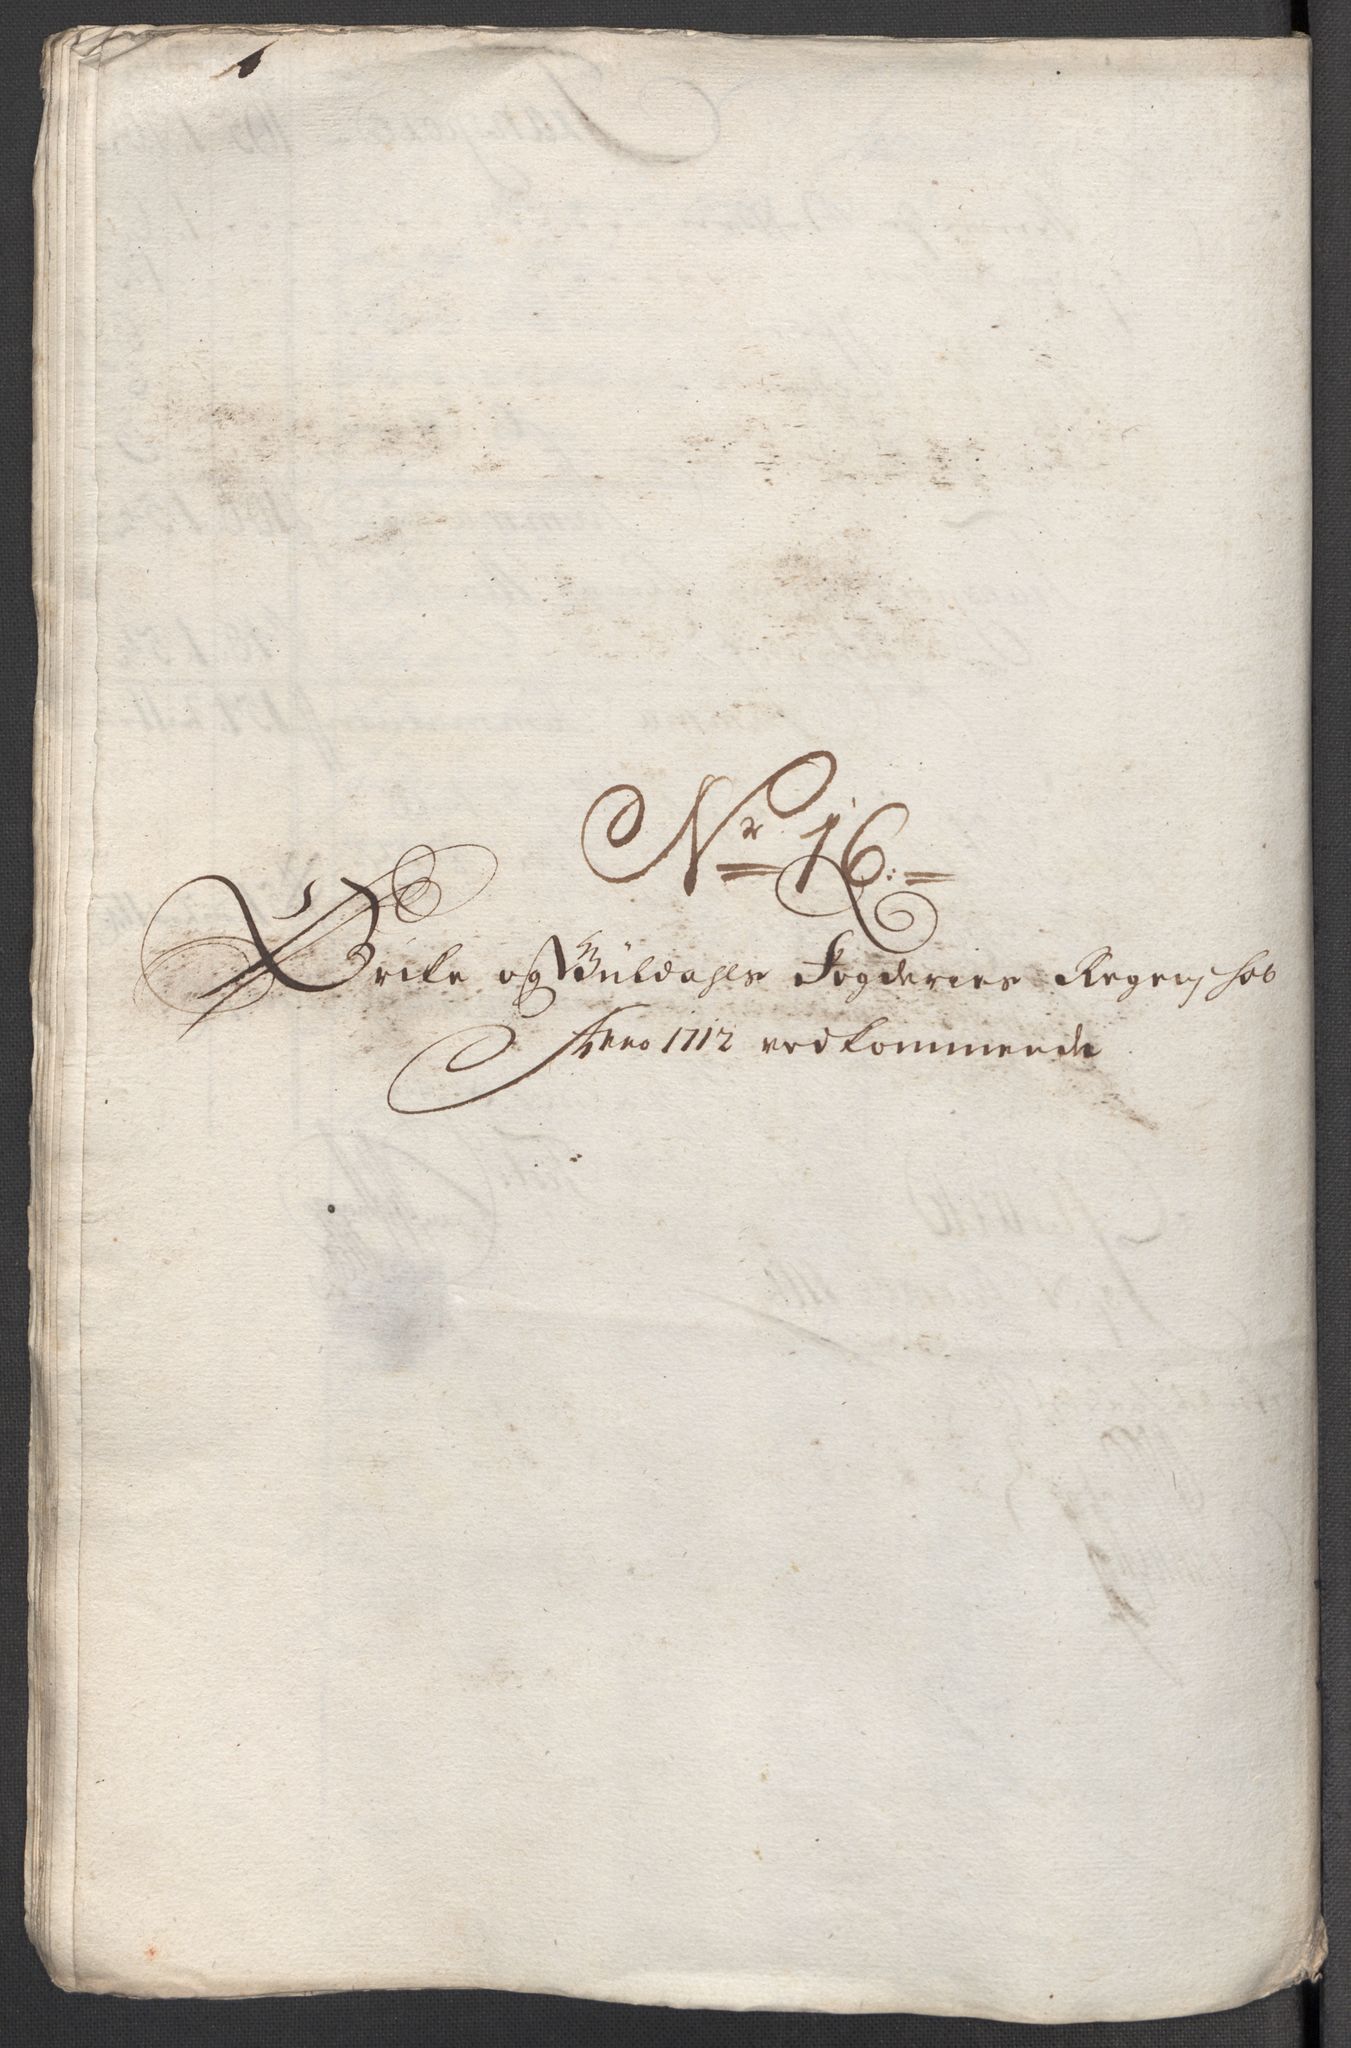 Nr 16.
Ørike og Gŭldahls Fogderies Regenschab
Anno 1712 vedkommende